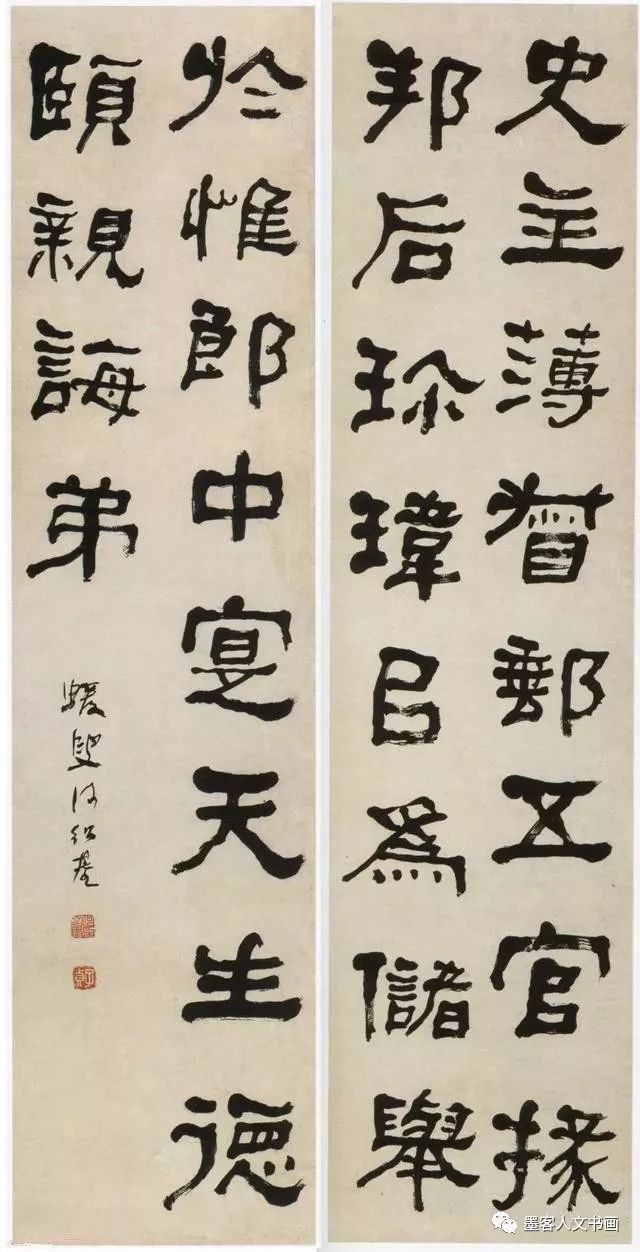 史主薄督郵五官掾
邦后珎瑋㠯爲儲舉
於惟郎中寔天生德
頤親誨弟
蝯叟何紹基
子貞
墨客人文书画